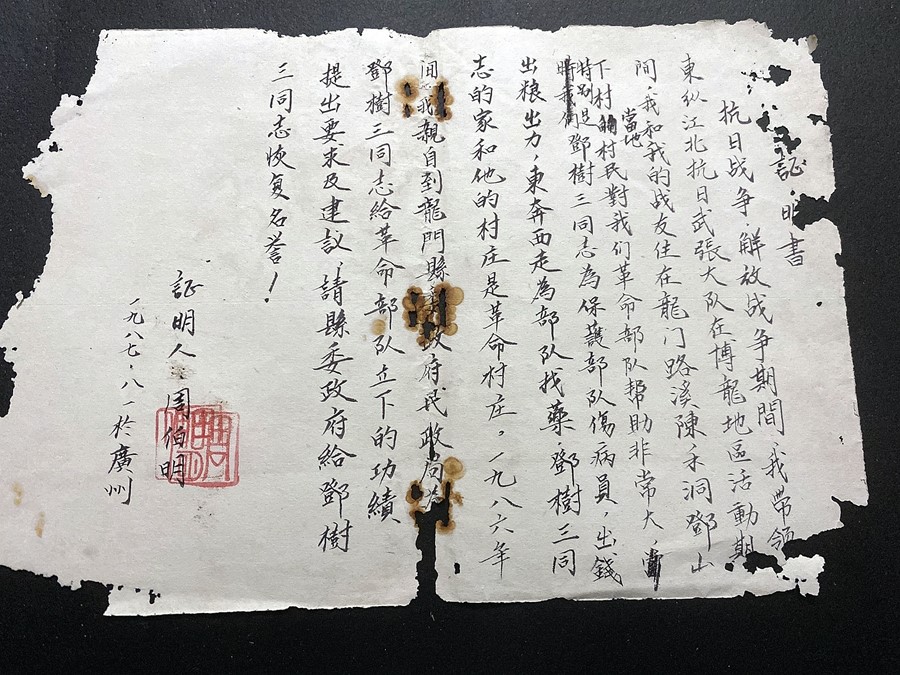 証明書
抗日战争、解放战争期間、我带领
東纵江北抗日武張大队在博龍地區活動期
间、我和我的战友住在龍门路溪陳禾洞鄧山
下村當地村民對我们革命部队帮助非常大,
特别是鄧樹三同志為保護部队傷病員,出錢
出粮出力,東奔西走為部队找藥、鄧樹三同
志的家和他的村庄是革命村庄。一九八六年
我親自到龍門縣委政府民政局為
鄧樹三同志給革命部队立下的功績
提出要求及建议、請縣委政府給鄧樹
三同志恢复名誉!
証明人 周伯明
一九八七.八.一於廣州